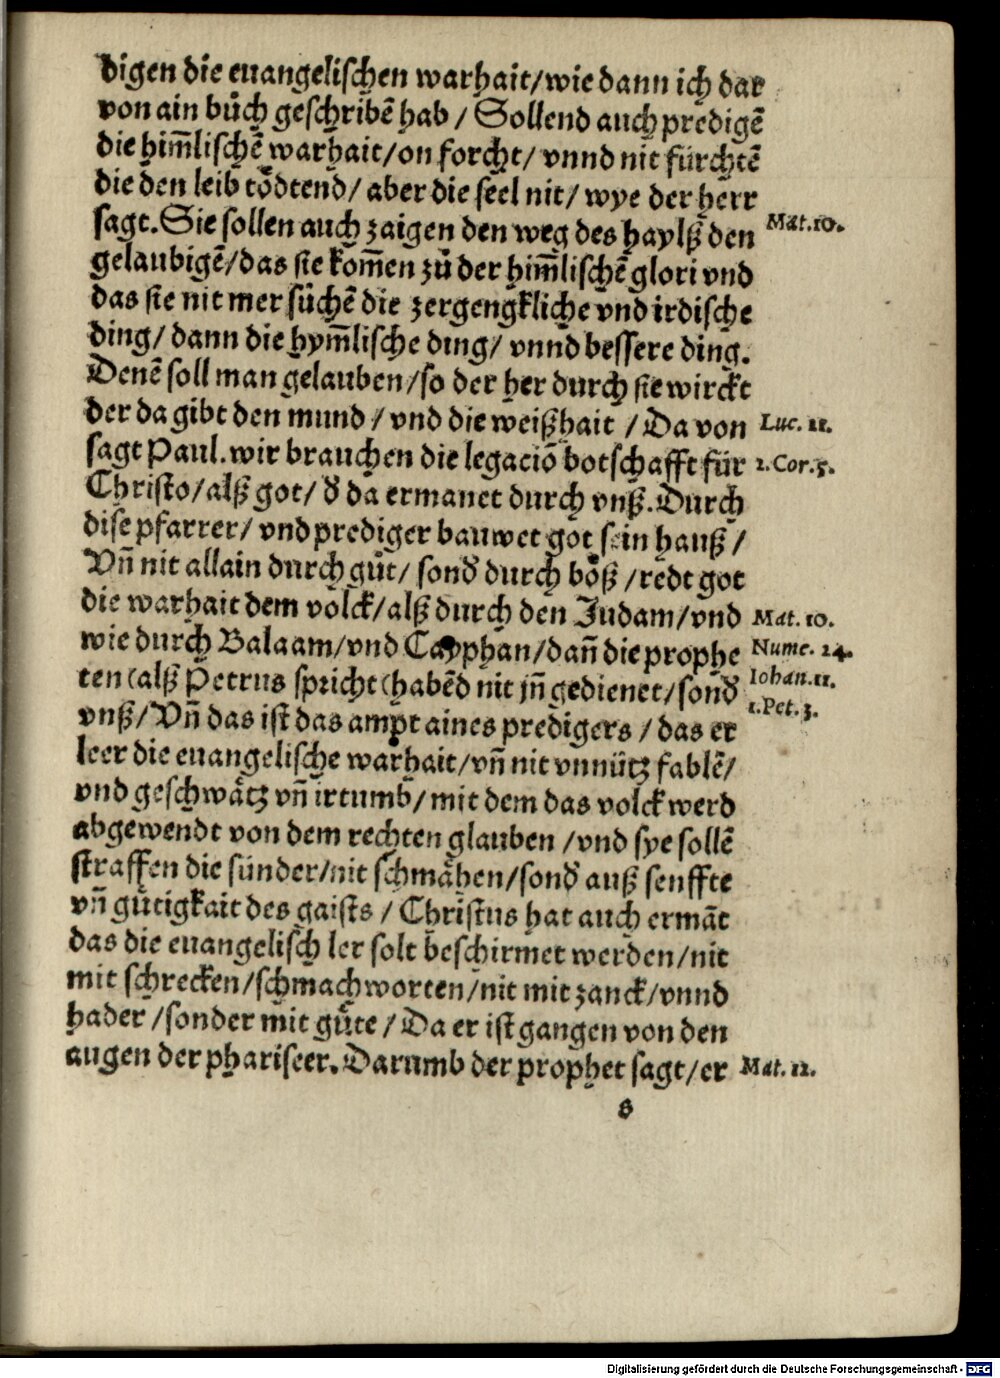 digen die euangelischen warhait/wie dann ich dar
von ain bůch geschribẽ hab / Sollend auch predigẽ
die him̃lischẽ warhait/on forcht/ vnnd nit fürchtẽ
die den leib tödtend/ aber die seel nit/ wye der herr
sagt. Sie sollen auch zaigen den weg des haylß den Mat.10.
gelaubigẽ/das sie kom̃en zů der him̃lischẽ glori vnd
das sie nit mer sůchẽ die zergengkliche vnd irdische
ding/ dann die hym̃lische ding/ vnnd bessere ding.
Denẽ soll man gelauben/so der her durch sie wirckt
der da gibt den mund / vnd die weißhait / Da von Luc. 11.
sagt Paul. wir brauchen die legaciõ botschafft für 2.Cor.5.
Christo/alß got/ d̓ da ermanet durch vnß. Durch
dise pfarrer/ vnd prediger bauwet got sein hauß /
Vñ nit allain durch gůt/ sond̓ durch böß /redt got
die warhait dem volck/alß durch den Judam/vnd Mat. 10.
wie durch Balaam/vnd Cayphan/dañ die prophe Nume. 24.
ten (alß Petrus spricht (habẽd nit jñ gedienet/sond̓ Iohan.11.
vnß/ Vñ das ist das ampt aines predigers / das er 1.Pet.3.
leer die euangelische warhait/vñ nit vnnütz fablẽ/
vnd geschwätz vñ irtumb/ mit dem das volck werd
abgewendt von dem rechten glauben /vnd sye sollẽ
straffen die sünder/nit schmähen/sond̓ auß senffte
vñ gütigkait des gaists / Christus hat auch ermãt
das die euangelisch ler solt beschirmet werden/nit
mit schrecken/schmachworten/nit mit zanck/vnnd
hader /sonder mit güte / Da er ist gangen von den
augen der phariseer. Darumb der prophet sagt/er Mat. 12.
Digitalisierung gefördert durch die Deutsche Forschungsgemeinschaft - DFG